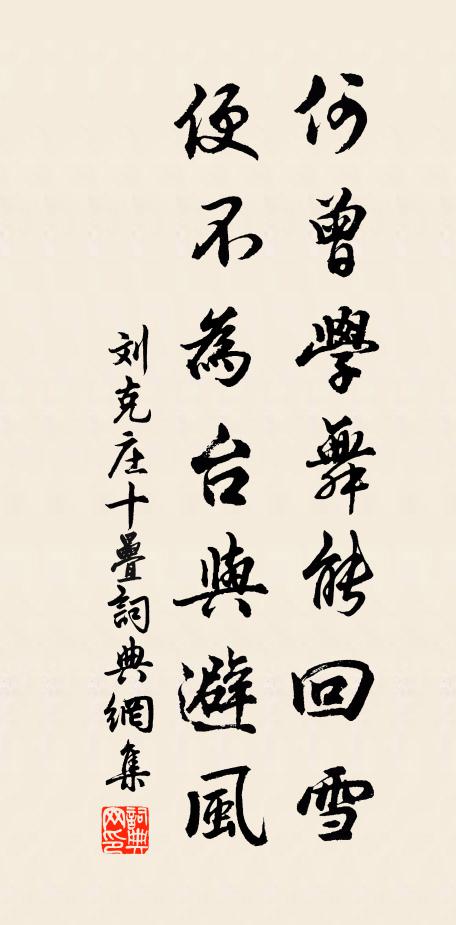 何曾學舞能回雪
便不為台與避風
刘克庄十疊詞典網集
詞典网印